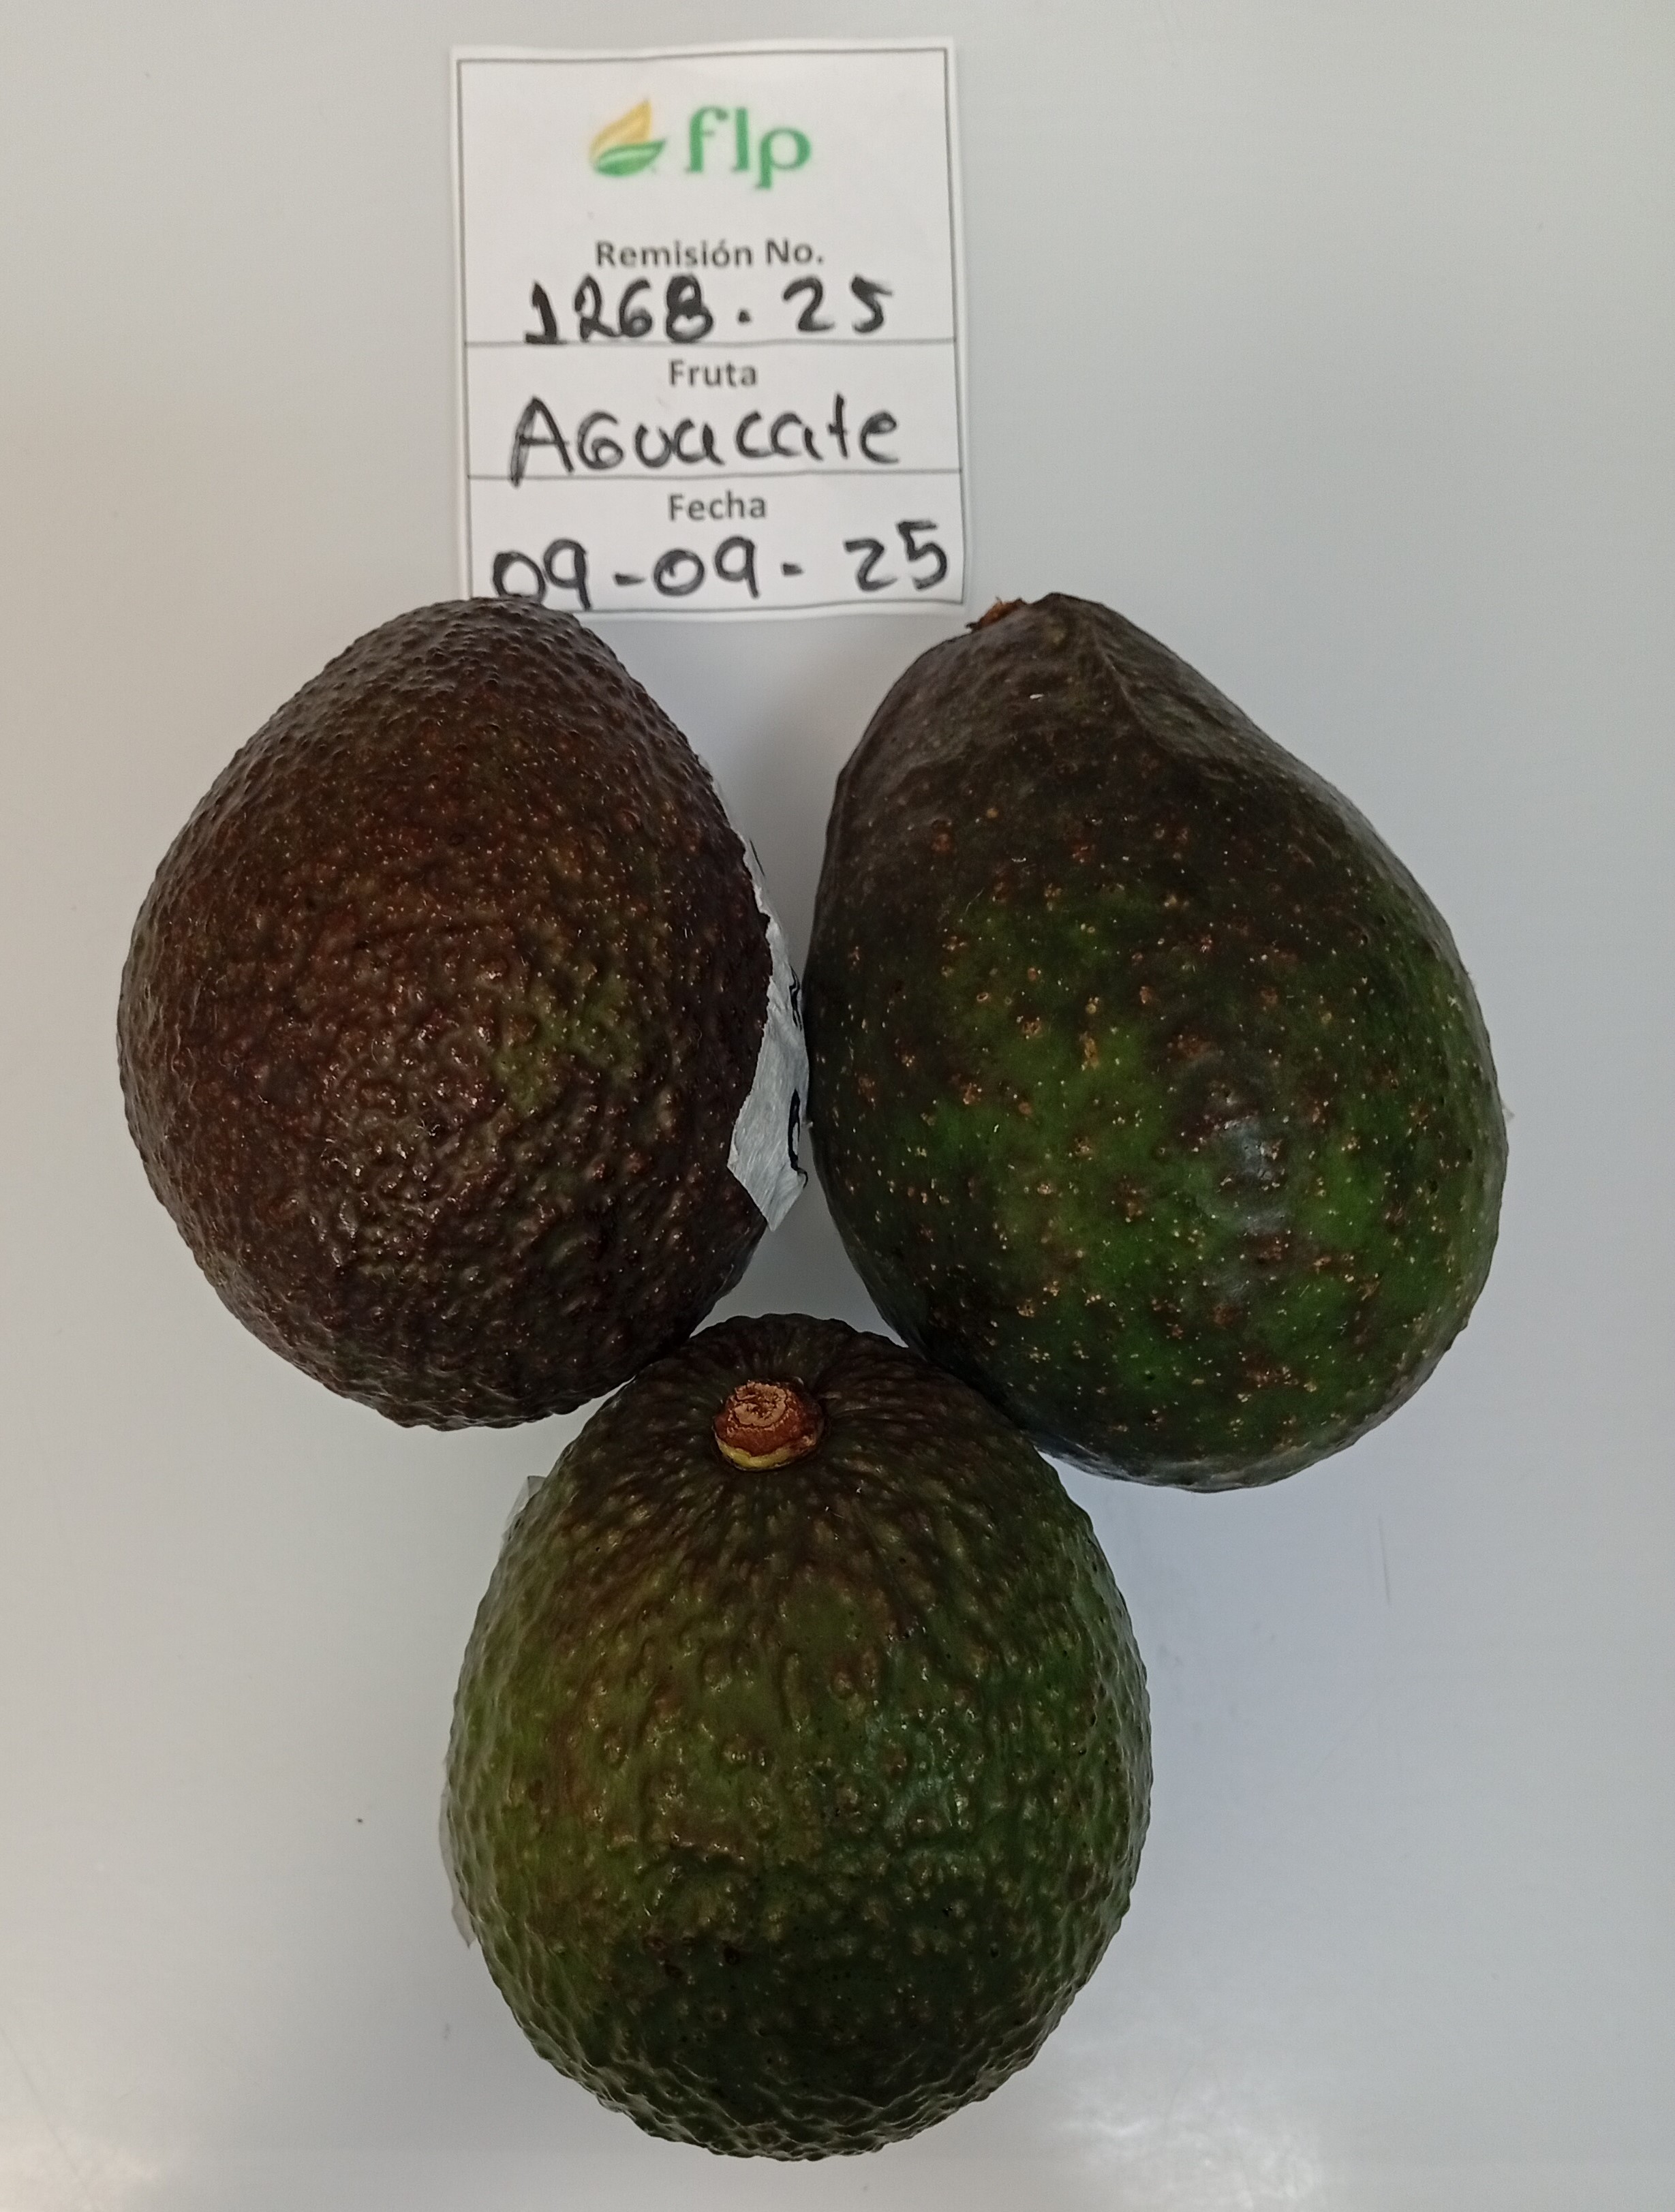 flp
Remisión No.
1268. 25
Fruta
AGuacate
Fecha
09-09-25